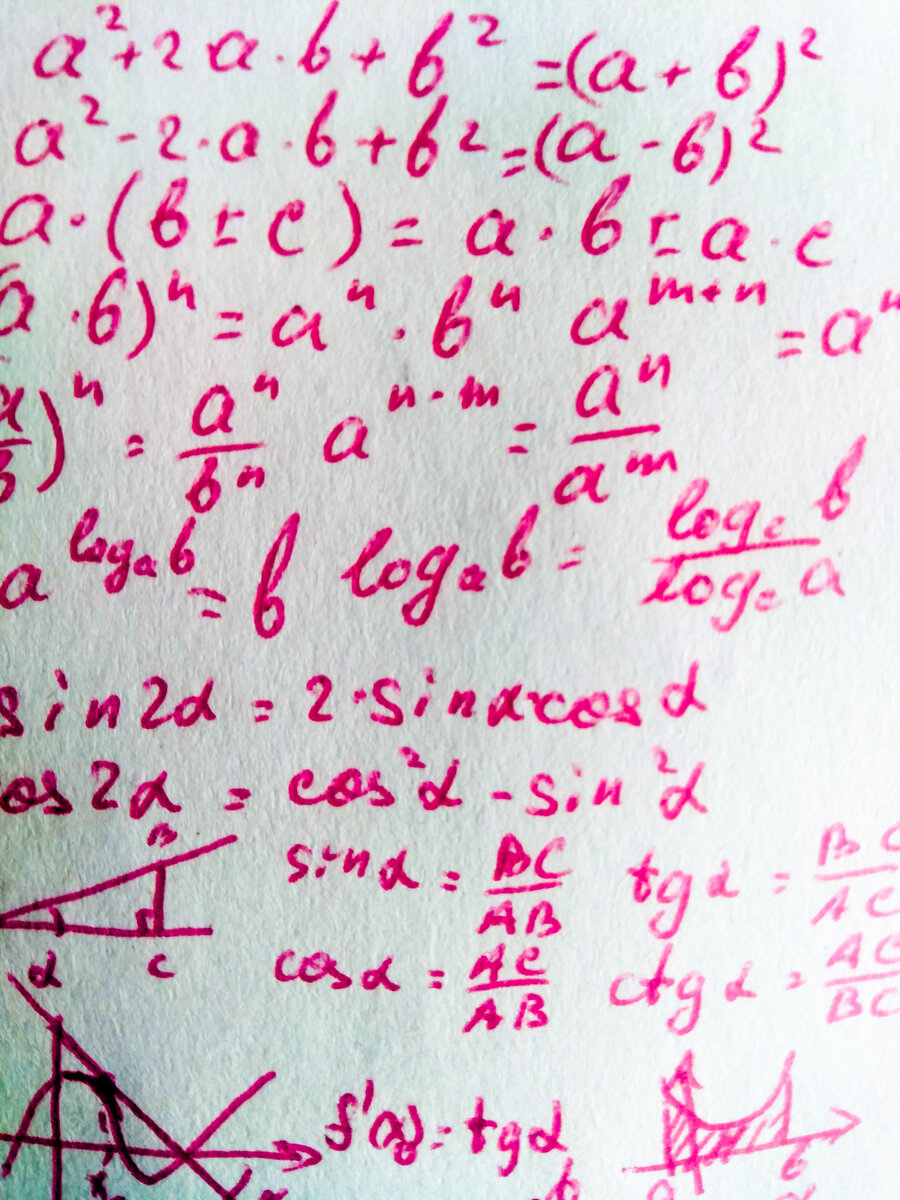 a² + 2·a·b + b² = (a + b)²
a² - 2·a·b + b² = (a - b)²
a·(b ± c) = a·b ± a·c
a·b)ⁿ = aⁿ·bⁿ a^(m+n) = aⁿ
a/b)ⁿ = aⁿ/bⁿ a^(n-m) = aⁿ/a^m
a^(log_a b) = b log_a b = log_c b / log_c a
sin2α = 2·sinα·cosα
os2α = cos²α - sin²α
B
sinα = BC/AB tgα = BC/AC
α C
cosα = AC/AB ctgα = AC/BC
f'(x) = tgα
x₀ α a b